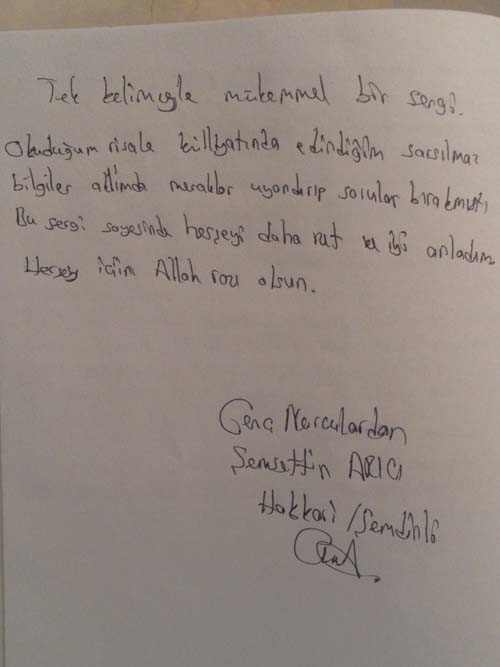 Tek kelimeyle mükemmel bir sergi.
Okuduğum risale külliyatında edindiğim sarsılmaz
bilgiler aklımda meraklar uyandırıp sorular bırakmıştı
Bu sergi sayesinde herşeyi daha rat ve iyi anladım
Herşey için Allah razı olsun.
Genç Nurculardan
Şemsettin ARICI
Hakkari / Şemdinli